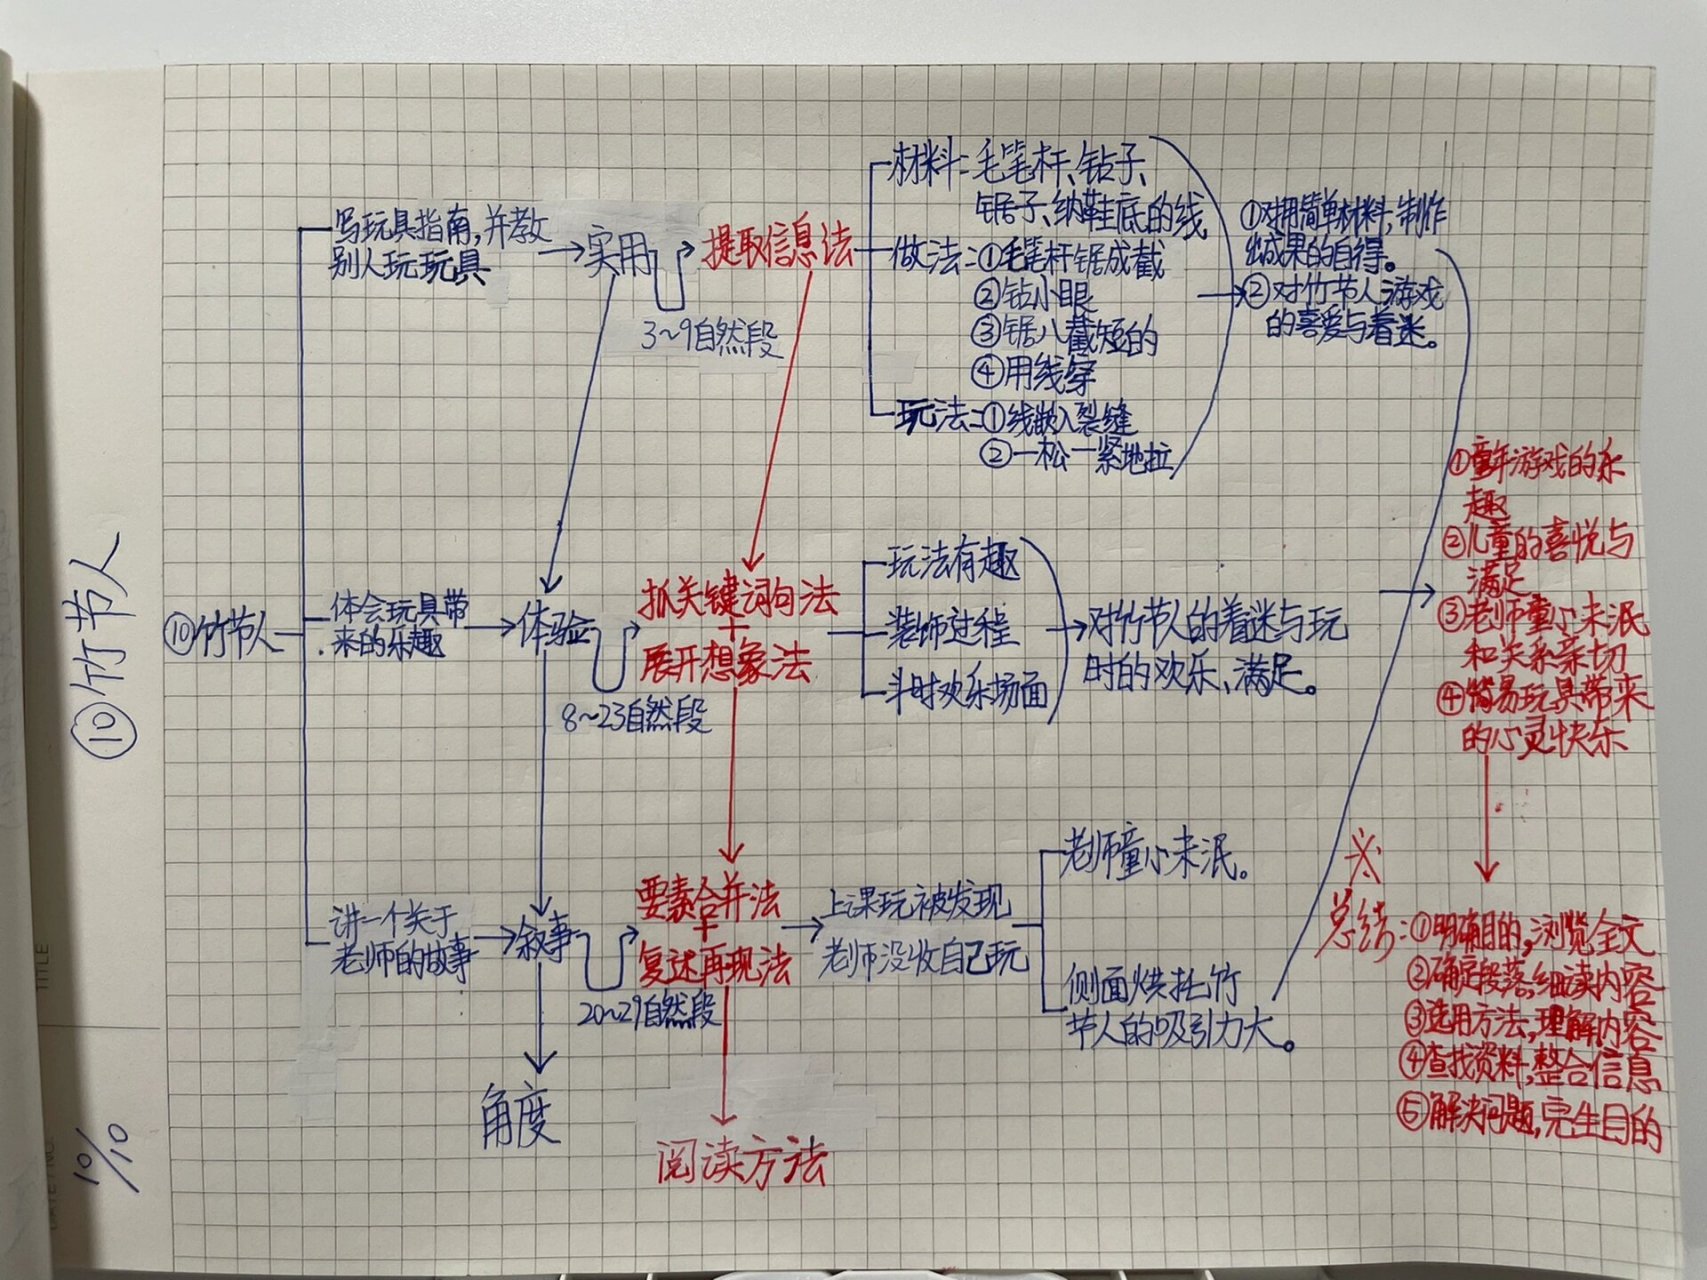 ⑩竹节人
10/10
⑩竹节人
写玩具指南,并教
别人玩玩具
实用
3~9自然段
提取信息法
材料:毛笔杆、钻子、
锯子、纳鞋底的线
做法:①毛笔杆锯成截
②钻小眼
③锯八截短的
④用线穿
玩法:①线嵌入裂缝
②一松一紧地拉
①对用简单材料,制作
出成果的自得。
②对竹节人游戏
的喜爱与着迷。
体会玩具带
来的乐趣
体验
8~23自然段
抓关键词句法
+
展开想象法
玩法有趣
装饰过程
斗时欢乐场面
对竹节人的着迷与玩
时的欢乐、满足。
讲一个关于
老师的故事
叙事
20~29自然段
要素合并法
+
复述再现法
上课玩被发现
老师没收自己玩
老师童心未泯。
侧面烘托竹
节人的吸引力大。
角度
阅读方法
①童年游戏的乐
趣
②儿童的喜悦与
满足
③老师童心未泯
和关系亲切
④简易玩具带来
的心灵快乐
※
总结:①明确目的,浏览全文
②确定段落,细读内容
③选用方法,理解内容
④查找资料,整合信息
⑤解决问题,完生目的
TITLE